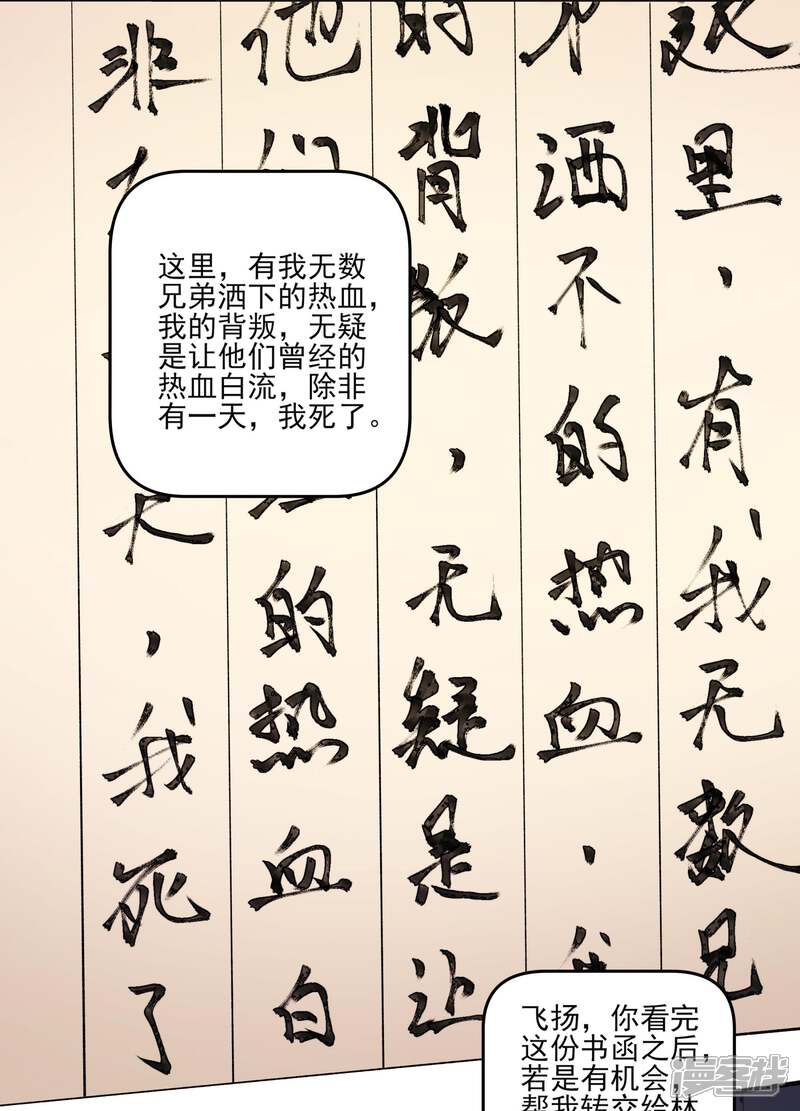 这里、有我无数兄
弟洒不的热血、我
的背叛，无疑是让
他们
的热血白
非
天，我死了
这里，有我无数
兄弟洒下的热血，
我的背叛，无疑
是让他们曾经的
热血白流，除非
有一天，我死了。
飞扬，你看完
这份书函之后，
若是有机会，
帮我转交给林
漫客栈